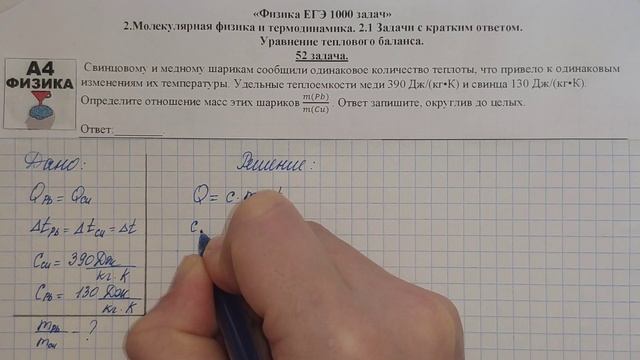 «Физика ЕГЭ 1000 задач»
2.Молекулярная физика и термодинамика. 2.1 Задачи с кратким ответом.
Уравнение теплового баланса.
52 задача.
А4
ФИЗИКА
Свинцовому и медному шарикам сообщили одинаковое количество теплоты, что привело к одинаковым
изменениям их температуры. Удельные теплоемкости меди 390 Дж/(кг•К) и свинца 130 Дж/(кг•К).
Определите отношение масс этих шариков m(Pb)/m(Cu). Ответ запишите, округлив до целых.
Ответ:________
Дано:
Q_Pb = Q_Cu
Δt_Pb = Δt_Cu = Δt
C_Cu = 390 Дж/кг·К
C_Pb = 130 Дж/кг·К
m_Pb/m_Cu - ?
Решение:
Q = c·
c.